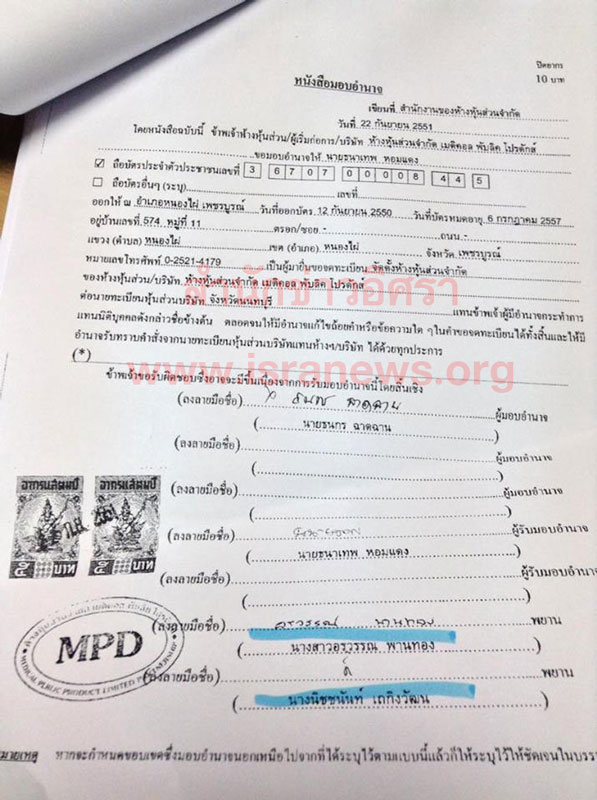 ปิดอากร
10 บาท
หนังสือมอบอำนาจ
เขียนที่ สำนักงานของห้างหุ้นส่วนจำกัด
วันที่ 22 กันยายน 2551
โดยหนังสือฉบับนี้ ข้าพเจ้าห้างหุ้นส่วน/ผู้เริ่มก่อการ/บริษัท ห้างหุ้นส่วนจำกัด เมดิคอล พับลิค โปรดักส์
ขอมอบอำนาจให้ นายธนาเทพ หอมแดง
☑ ถือบัตรประจำตัวประชาชนเลขที่ 3 6707 00008 44 5
☐ ถือบัตรอื่นๆ (ระบุ) เลขที่
ออกให้ ณ อำเภอหนองไผ่ เพชรบูรณ์ วันที่ออกบัตร 12 กันยายน 2550 วันที่บัตรหมดอายุ 6 กรกฎาคม 2557
อยู่บ้านเลขที่ 574 หมู่ที่ 11 ตรอก/ซอย - ถนน -
แขวง (ตำบล) หนองไผ่ เขต (อำเภอ) หนองไผ่ จังหวัด เพชรบูรณ์
หมายเลขโทรศัพท์ 0-2521-4179 เป็นผู้มายื่นขอจดทะเบียน จัดตั้งห้างหุ้นส่วนจำกัด
ของห้างหุ้นส่วน/บริษัท ห้างหุ้นส่วนจำกัด เมดิคอล พับลิค โปรดักส์
ต่อนายทะเบียนหุ้นส่วนบริษัท จังหวัดนนทบุรี แทนข้าพเจ้าผู้มีอำนาจกระทำการ
แทนนิติบุคคลดังกล่าวชื่อข้างต้น ตลอดจนให้มีอำนาจแก้ไขถ้อยคำหรือข้อความใด ๆ ในคำขอจดทะเบียนได้ทั้งสิ้นและให้มี
อำนาจรับทราบคำสั่งจากนายทะเบียนหุ้นส่วนบริษัทแทนห้างฯ/บริษัท ได้ด้วยทุกประการ
(*)
สำนักข่าวอิศรา
www.isranews.org
ข้าพเจ้าขอรับผิดชอบซึ่งอาจจะมีขึ้นเนื่องจากการรับมอบอำนาจนี้โดยสิ้นเชิง
(ลงลายมือชื่อ) ธนกร ฉาดฉาน ผู้มอบอำนาจ
(นายธนกร ฉาดฉาน)
(ลงลายมือชื่อ) ผู้มอบอำนาจ
( )
(ลงลายมือชื่อ) ผู้มอบอำนาจ
( )
(ลงลายมือชื่อ) ผู้รับมอบอำนาจ
(นายธนาเทพ หอมแดง)
(ลงลายมือชื่อ) ผู้รับมอบอำนาจ
( )
อากรแสตมป์ อากรแสตมป์
๕ บาท ๕ บาท
(ลงลายมือชื่อ) อรวรรณ พานทอง พยาน
(นางสาวอรวรรณ พานทอง)
(ลงลายมือชื่อ) พยาน
(นางนิชชนันท์ เถกิงวัฒน)
MPD
MEDICAL PUBLIC PRODUCT LIMITED PARTNERSHIP
หากจะกำหนดขอบเขตซึ่งมอบอำนาจนอกเหนือไปจากที่ได้ระบุไว้ตามแบบนี้แล้วก็ให้ระบุไว้ให้ชัดเจนในบรร